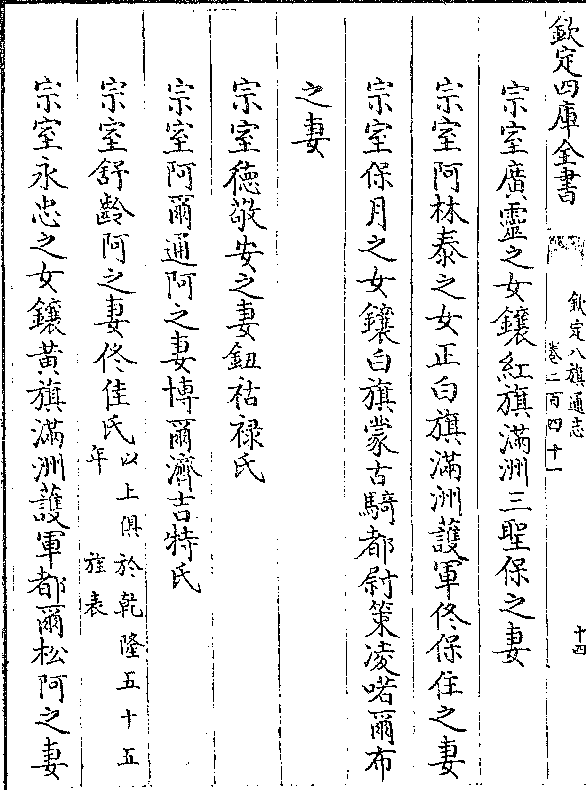 欽定四庫全書
欽定八旗通志
卷二百四十一
十四
宗室廣靈之女鑲紅旗滿洲三聖保之妻
宗室阿林泰之女正白旗滿洲護軍佟保住之妻
宗室保月之女鑲白旗蒙古騎都尉策凌喏爾布
之妻
宗室德敬安之妻鈕祜祿氏
宗室阿爾通阿之妻博爾濟吉特氏
宗室舒齡阿之妻佟佳氏以上俱於乾隆五十五
年旌表
宗室永忠之女鑲黃旗滿洲護軍都爾松阿之妻